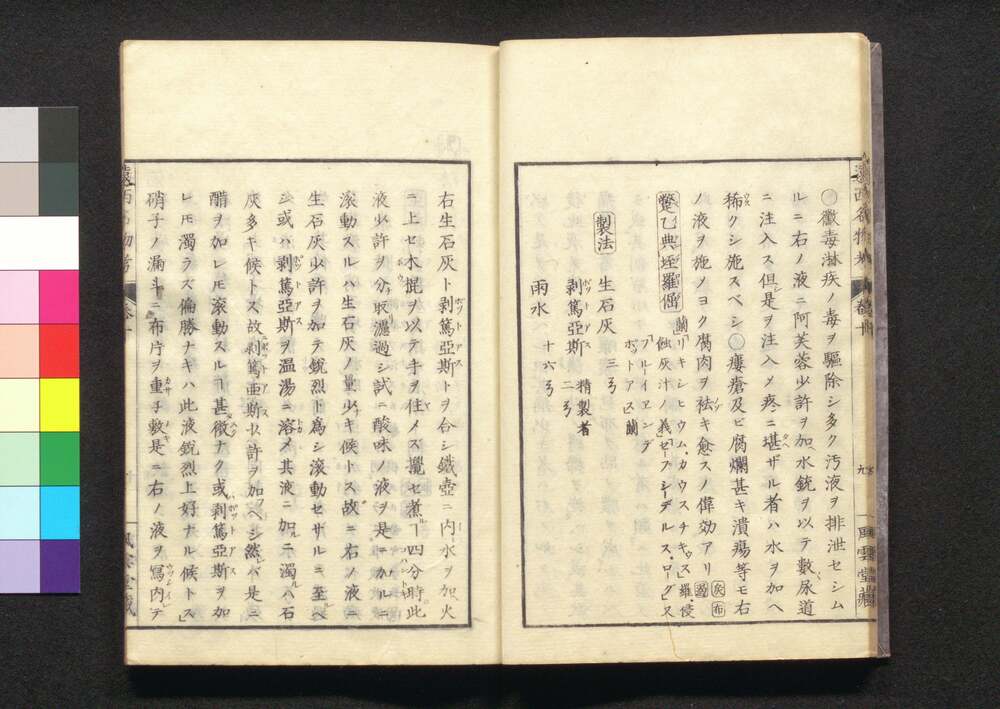 ○黴毒淋疾ノ毒ヲ驅除シ多ク汚液ヲ排泄セシム
ルニ右ノ液ニ阿芙蓉少許ヲ加水銃ヲ以テ數尿道
ニ注入ス但是ヲ注入メ疼ニ堪ザル者ハ水ヲ加ヘ
稀クシ施スベシ○瘻瘡及ヒ腐爛甚キ潰瘍等モ右
ノ液ヲ施ノヨク腐肉ヲ袪キ愈スノ偉効アリ
蹩乙典垤羅僧
蘭リキシヒウム、カウスチキゥス」羅侵
蝕灰汁ノ義」セープシーデルス、ローグ」又
ブレイヱンデ
ポットアス」蘭
製法
生石灰 三ゟ
剥篤亞斯 精製者 二ゟ
雨水 十六ゟ
右生石灰ト剥篤亞斯トヲ合シ鐵壺ニ内水ヲ加火
ニ上セ木掍ヲ以テ手ヲ住メス攪セ煮ヿ四分時此
液少許ヲ分取濾過シ試ニ酸味ノ液ヲ是ニ加ルニ
滾動スルハ生石灰ノ量少キ候トス故ニ右ノ液ニ
生石灰少許ヲ加テ銳烈ト爲シ滾動セサルニ至ル
シ或ハ剥篤亞斯ヲ温湯ニ溶メ其液ニ加ルニ濁ルハ石
灰多キ候トス故ニ剥篤亜斯少許ヲ加フヘシ然レバ是ニ
醋ヲ加レ𪜈滾動スルヿ甚微ナク或剥篤亞斯ヲ加
レ𪜈濁ラズ偏勝ナキハ此液銳烈上好ナル候トス」
硝子ノ漏斗ニ布片ヲ重子敷是ニ右ノ液ヲ寫内テ
遠西名物考
卷一
風雲堂藏